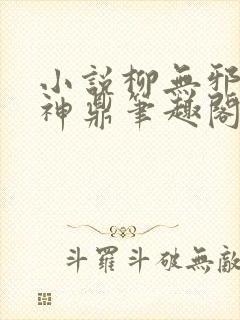 小說柳無邪
神鼎筆趣閣
斗羅斗破無敵